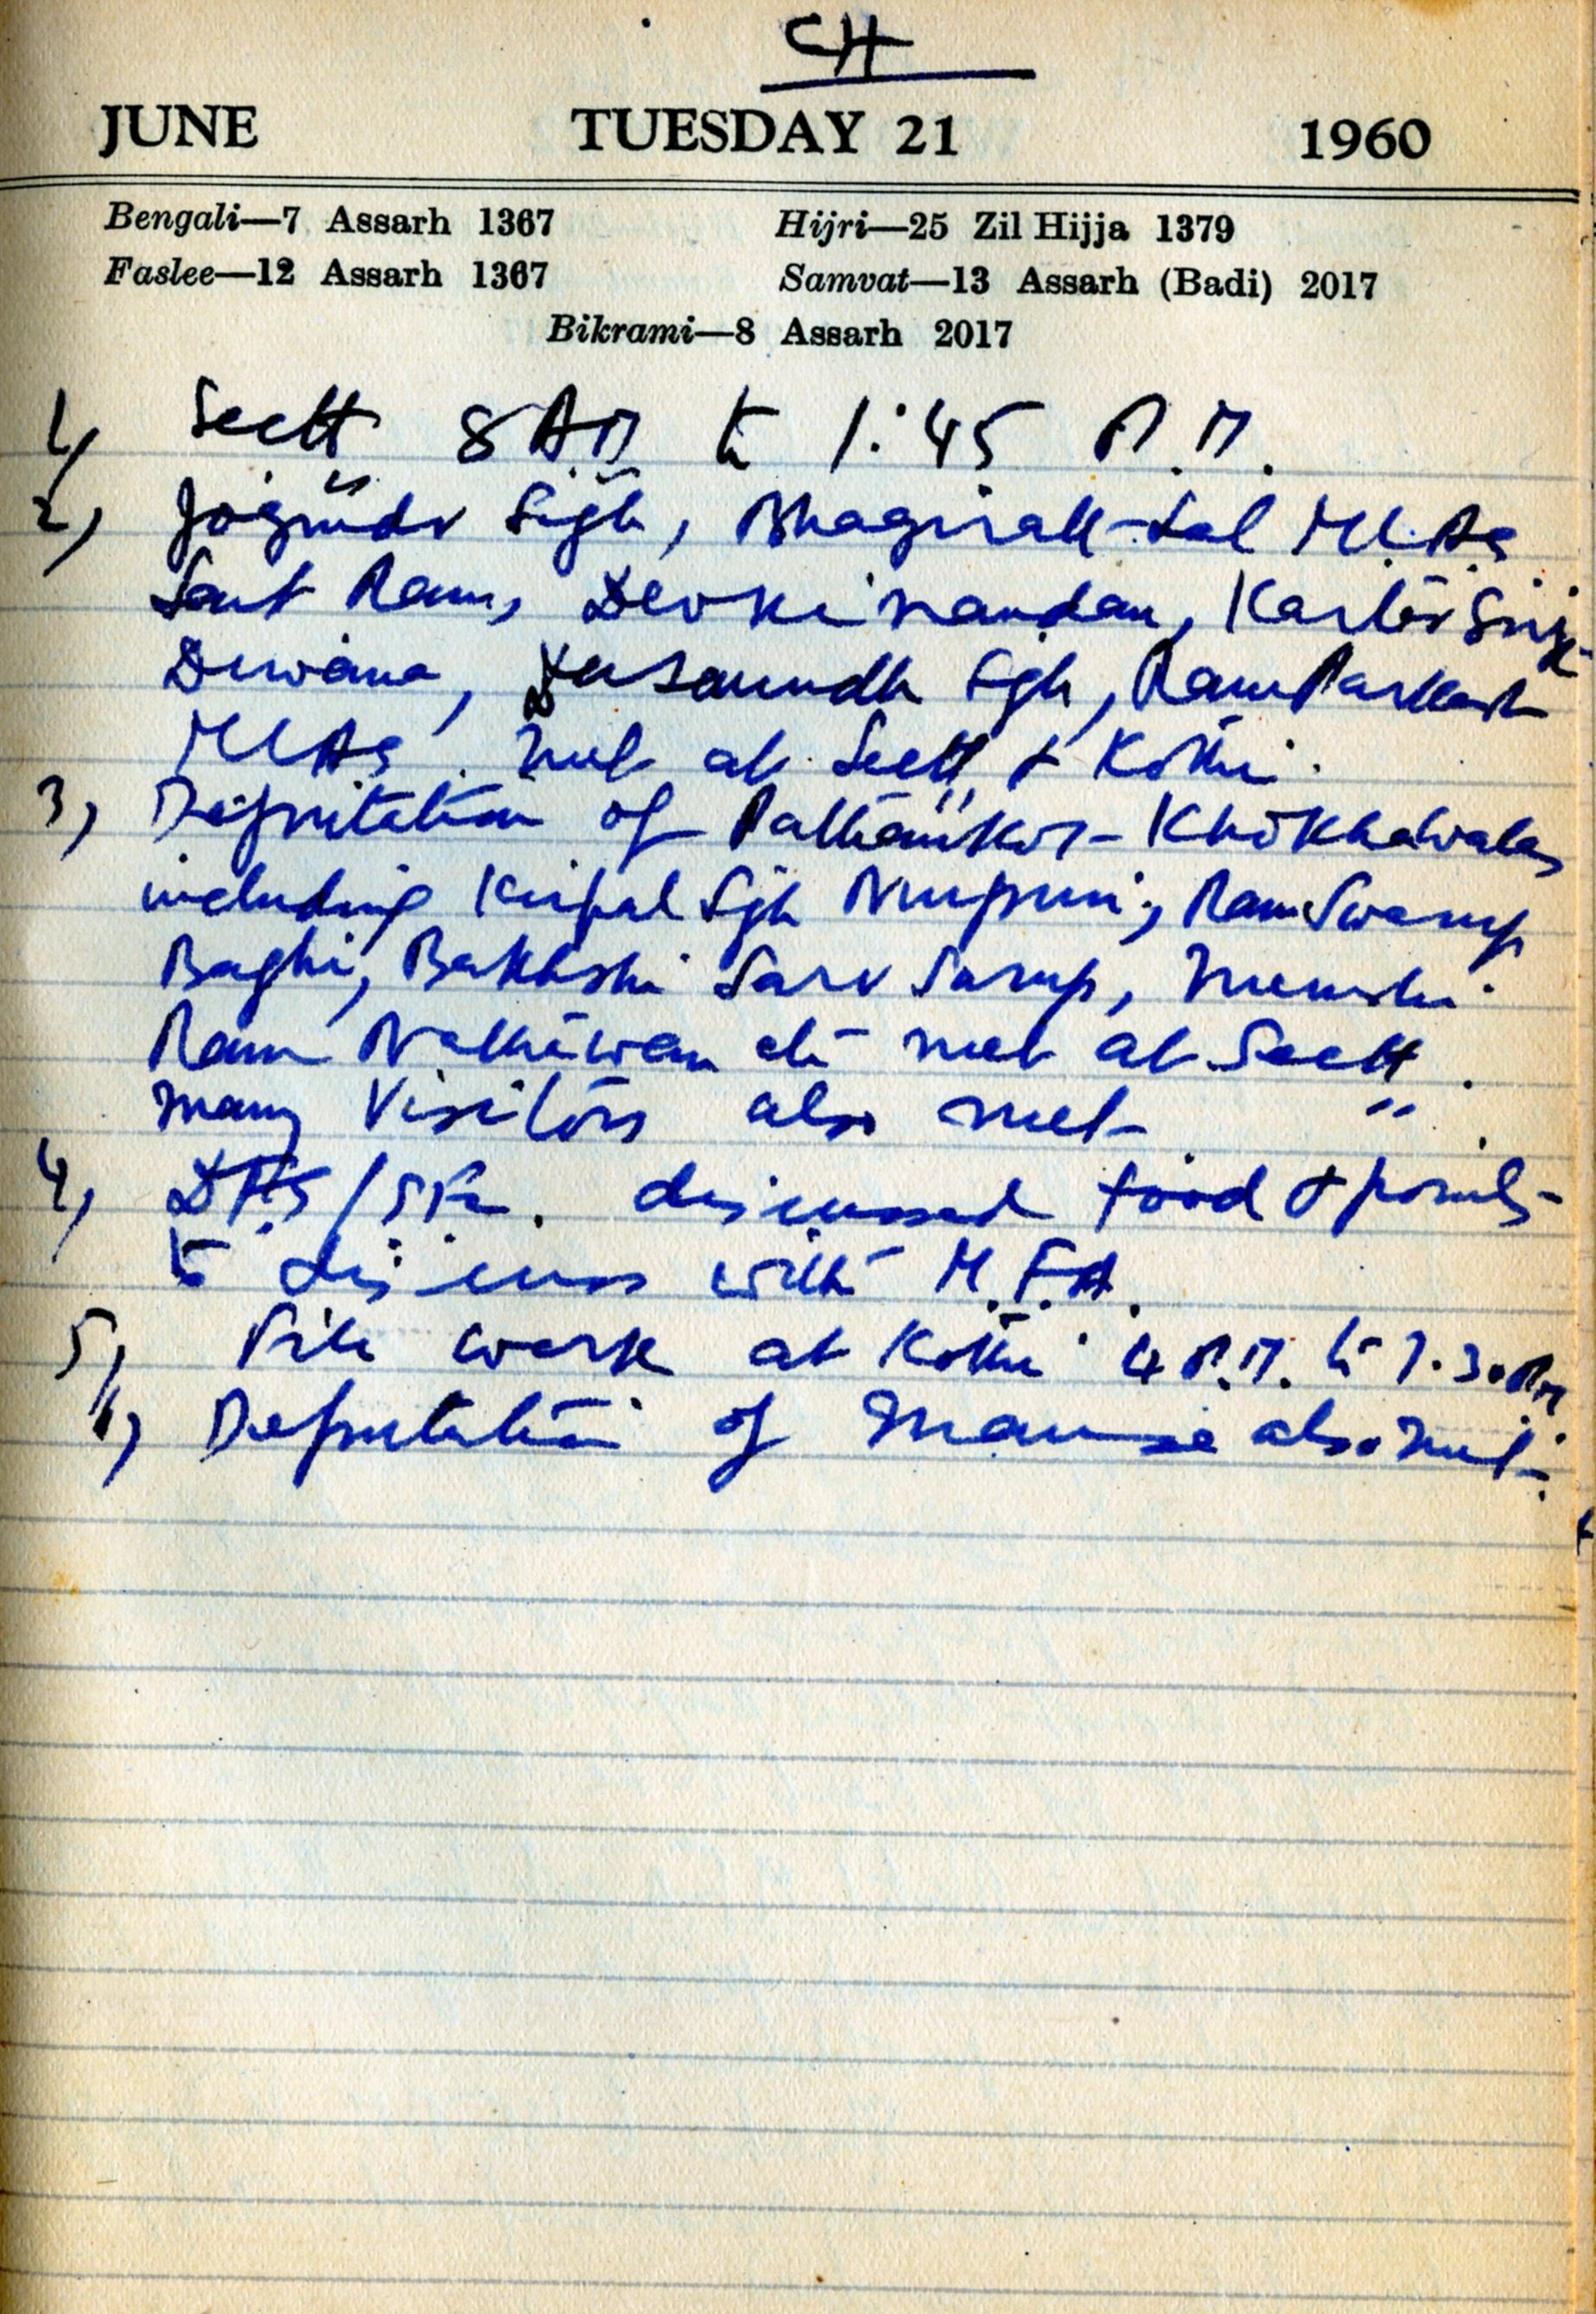 CH
JUNE TUESDAY 21 1960
Bengali—7 Assarh 1367 Hijri—25 Zil Hijja 1379
Faslee—12 Assarh 1367 Samvat—13 Assarh (Badi) 2017
Bikrami—8 Assarh 2017
1, Sectt 8 AM to 1:45 P.M.
2, Joginder Sigh, Bhagirath Lal MLAs
Sant Ram, Devki nandan, Kartar Singh
Dewana, Dasaundh Sgh, Ram Parkash
MLAs. met at Sectt & Kothi.
3, Deputation of Pathankot - Khokhawalas
including Kirpal Sgh Nurpuri, Ram Swarup
Baghi, Bakhshi Sarv Sarup, Munshi
Ram etc met at Sectt.
many Visitors also met " .
4, DFS / discussed food & points
to discuss with M.F.A.
5, File work at Kothi 4 P.M. to 7.30 PM
6, Deputation of also met.